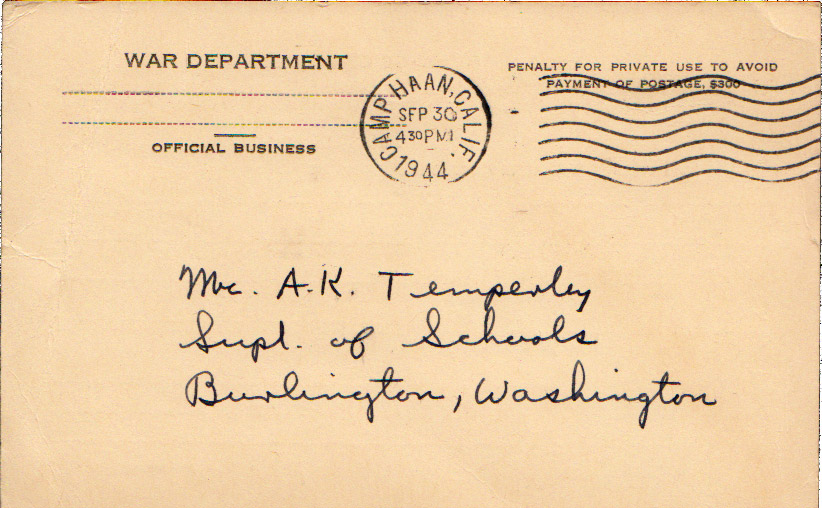 WAR DEPARTMENT
OFFICIAL BUSINESS
CAMP HAAN, CALIF.
SEP 30
4 30 PM
1944
PENALTY FOR PRIVATE USE TO AVOID
PAYMENT OF POSTAGE, $300
Mr. A.K. Temperley
Supt. of Schools
Burlington, Washington